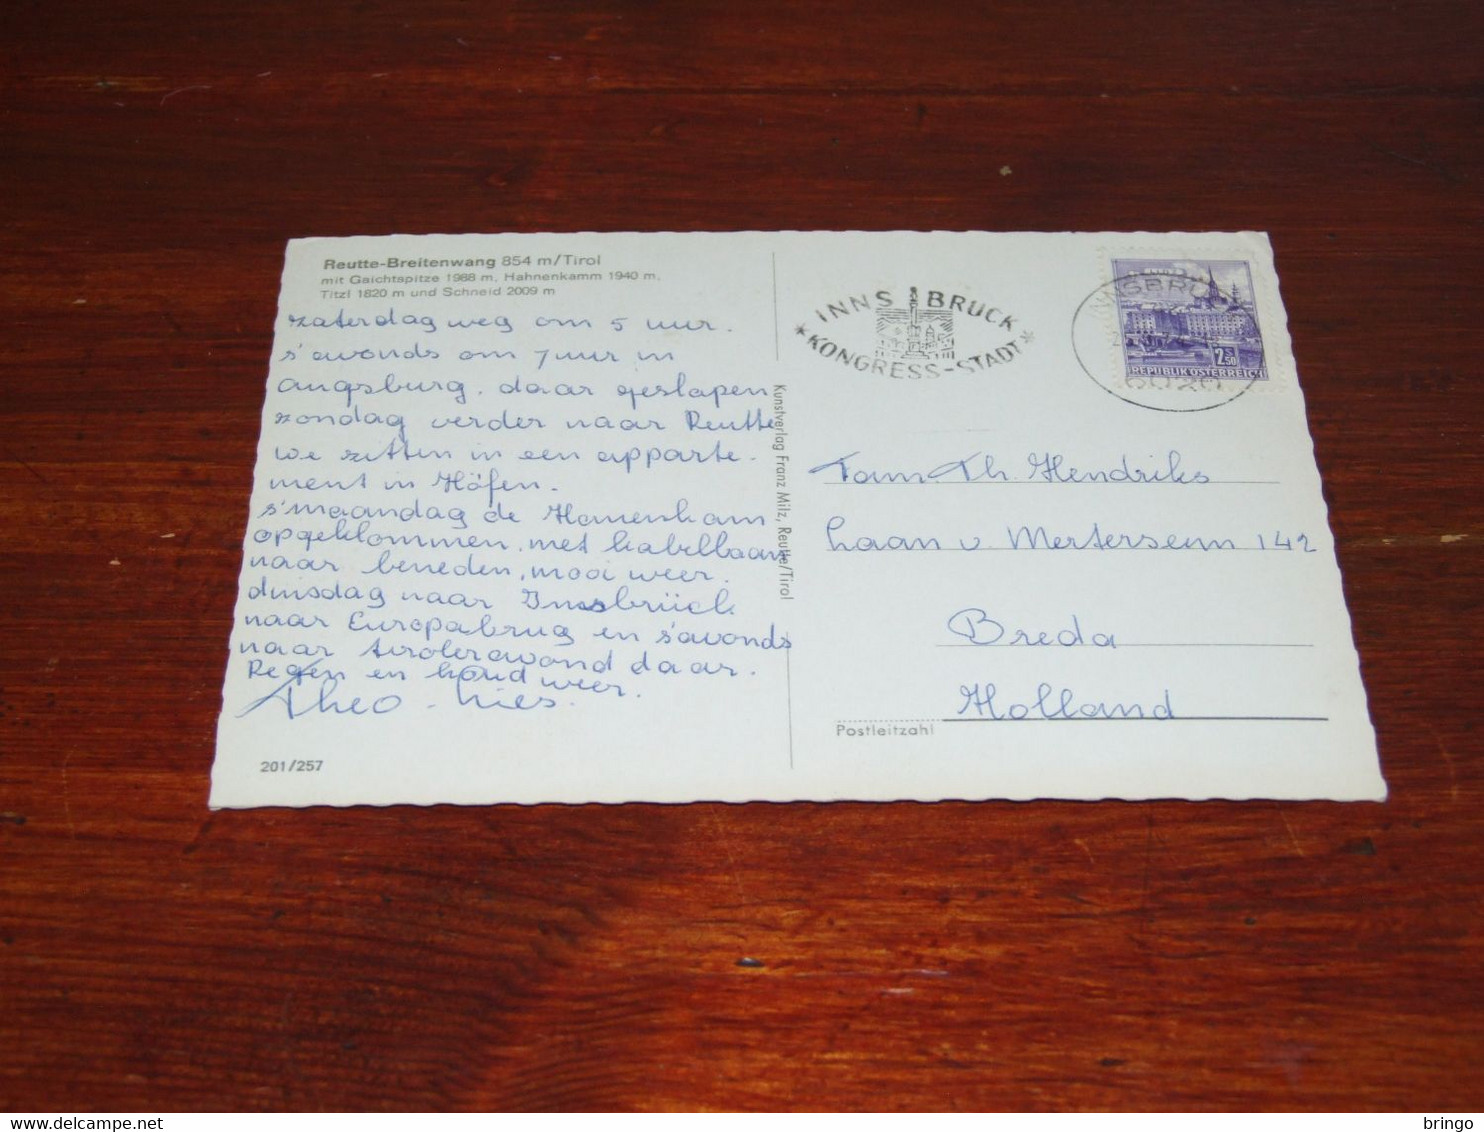 Reutte-Breitenwang 854 m/Tirol
mit Gaichtspitze 1988 m, Hahnenkamm 1940 m,
Titzl 1820 m und Schneid 2009 m
zaterdag weg om 5 uur.
s'avonds om 7 uur in
augsburg. daar geslapen
zondag verder naar Reutte
we zitten in een apparte-
ment in Höfen.
s'maandag de Hanenkam
opgeklommen, met kabelbaan
naar beneden, mooi weer.
dinsdag naar Innsbrück
naar Europabrug en s'avonds
naar tiroleravond daar.
Regen en koud weer.
Theo - Mies.
201/257
Kunstverlag Franz Milz, Reutte/Tirol
INNSBRUCK
*KONGRESS-STADT*
INNSBRUCK
6020
2.50
REPUBLIK ÖSTERREICH
Fam Th. Hendriks
Laan v. Mertersem 142
Breda
Holland
Postleitzahl
bringo